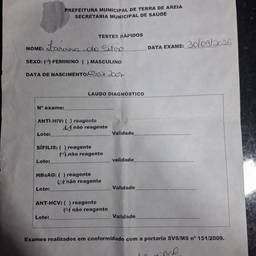 PREFEITURA MUNICIPAL DE TERRA DE AREIA
SECRETARIA MUNICIPAL DE SAÚDE
TESTES RÁPIDOS
NOME: da Silva DATA EXAME: 30/09/2020
SEXO: (x) FEMININO ( ) MASCULINO
DATA DE NASCIMENTO:
LAUDO DIAGNÓSTICO
Nº exame:
ANTI-HIV: ( ) reagente
(x) não reagente
Lote: Validade
SÍFILIS: ( ) reagente
(x) não reagente
Lote: validade
HBsAG: ( ) reagente
(x) não reagente
Lote: Validade
ANT-HCV: ( ) reagente
(x) não reagente
Lote: Validade
Exames realizados em conformidade com a portaria SVS/MS nº 151/2009.